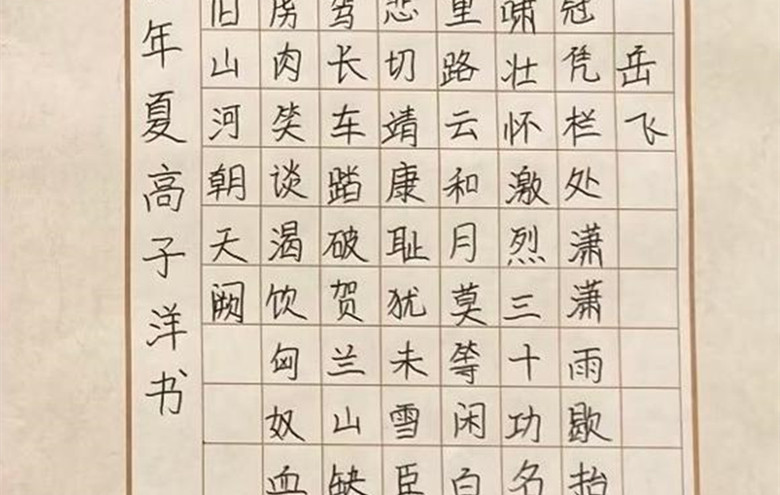 岳飞
冠凭栏处潇潇雨歇抬
啸壮怀激烈三十功名
里路云和月莫等闲白
悲切靖康耻犹未雪臣
驾长车踏破贺兰山缺
虏肉笑谈渴饮匈奴血
旧山河朝天阙
年夏高子洋书